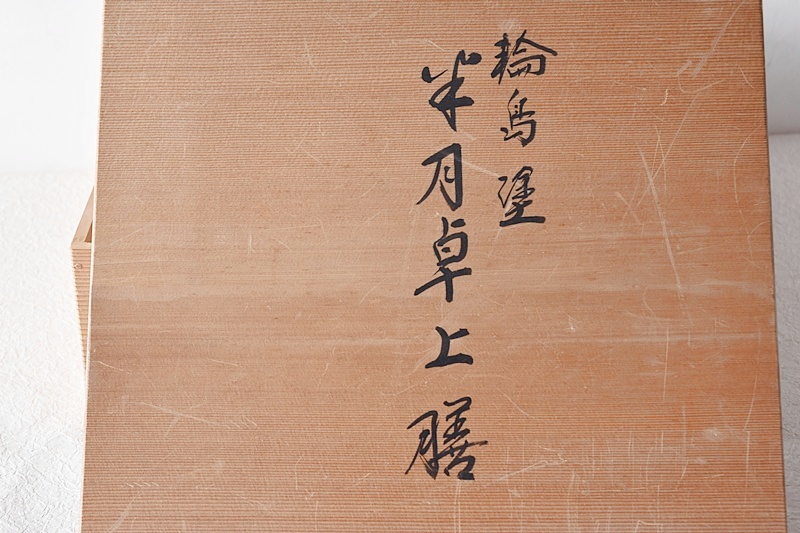 輪島塗
半月卓上膳